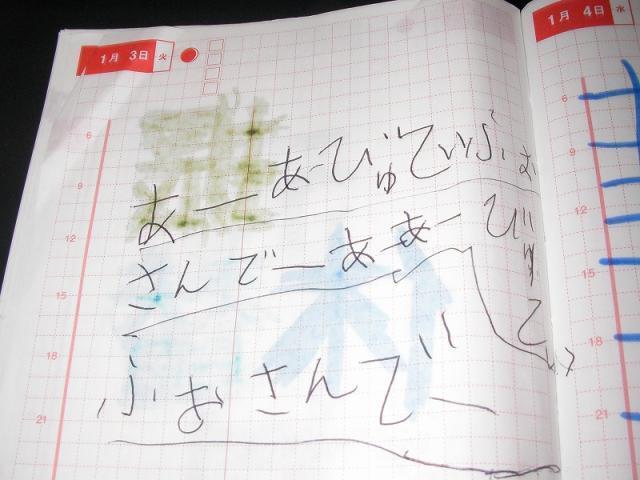 1月 3日 火
6
9
12
15
18
21
あー あーびゅてぃふぉ
さんでー ああー びゅてぃ
ふぉさんでー
1月 4日 水
6
9
12
15
18
21